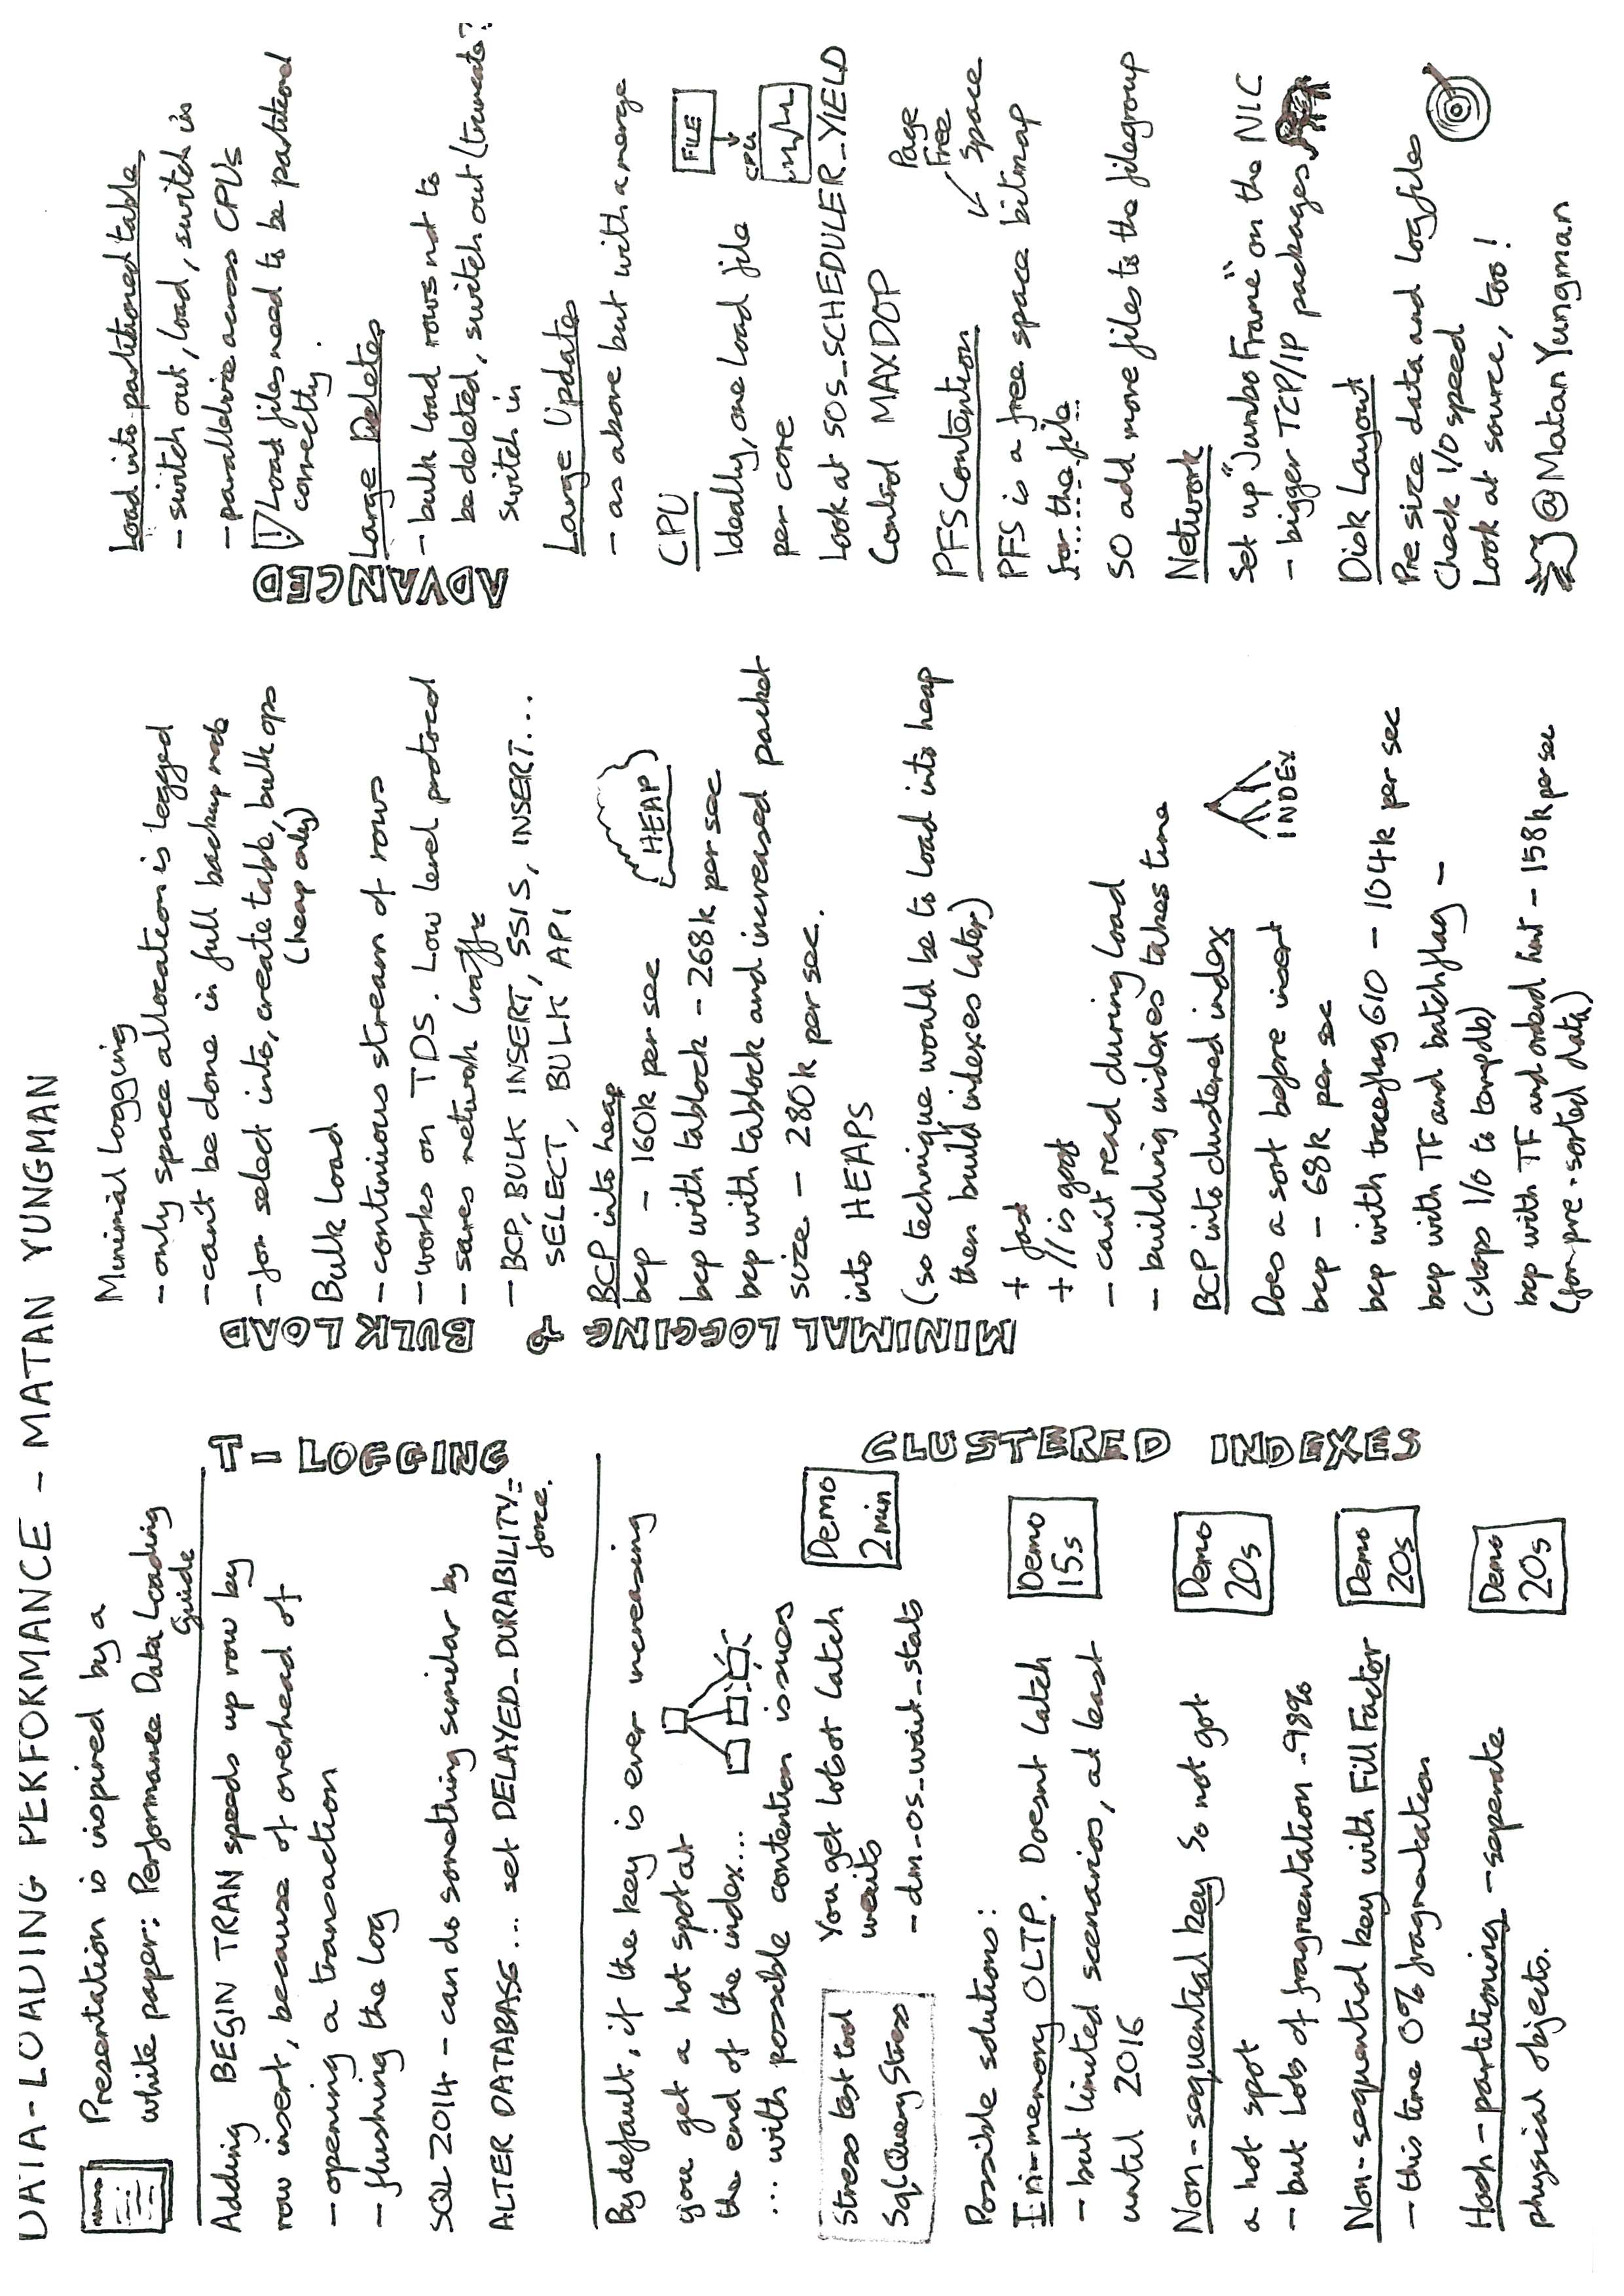 DATA-LOADING PERFORMANCE - MATAN YUNGMAN
Presentation is inspired by a
white paper: Performance Data Loading
Guide
T-LOGGING
Adding BEGIN TRAN speeds up row by
row insert, because of overhead of
- opening a transaction
- flushing the log
SQL 2014 - can do something similar by
ALTER DATABASE... set DELAYED_DURABILITY =
force.
CLUSTERED INDEXES
By default, if the key is ever increasing
you get a hot spot at
the end of the index...
... with possible contention issues
Stress test tool
SqlQueryStress
You get lots of latch
waits
- dm_os_wait_stats
Demo
2 min
Possible solutions:
In-memory OLTP. Doesnt latch
- but limited scenarios, at least
until 2016
Demo
15s
Non-sequential key So not got
a hot spot
- but lots of fragmentation -98%
Demo
20s
Non-sequential key with Fill Factor
- this time 0% fragmentation
Demo
20s
Hash-partitioning - seperate
physical objects.
Demo
20s
MINIMAL LOGGING & BULK LOAD
Minimal logging
- only space allocation is logged
- can't be done in full backup mode
- for select into, create table, bulk ops
(heap only)
Bulk Load
- continuous stream of rows
- works on TDS. Low level protocol
- saves network traffic
- BCP, BULK INSERT, SSIS, INSERT...
SELECT, BULK API
BCP into heap
bcp - 160k per sec
HEAP
bcp with tablock - 268k per sec
bcp with tablock and increased packet
size - 280k per sec.
into HEAPS
(so technique would be to load into heap
then build indexes later)
+ fast
+ // is good
- can't read during load
- building indexes takes time
BCP into clustered index
Does a sort before insert
bcp - 68k per sec
INDEX
bcp with traceflag 610 - 104k per sec
bcp with TF and batch flag -
(stops I/O to tempdb)
bcp with TF and ordered hint - 158k per sec
(for pre-sorted data)
ADVANCED
Load into partitioned table
- switch out, load, switch in
- parallelise across CPUs
! Load files need to be partitioned
correctly.
Large Deletes
- bulk load rows not to
be deleted, switch out (truncate?)
switch in
Large Updates
- as above but with a merge
CPU
Ideally, one load file
per core
FILE
CPU
Look at SOS_SCHEDULER_YIELD
Control MAXDOP
PFS Contention
Page
Free
Space
PFS is a free space bitmap
for the file
So add more files to the filegroup
Network
Set up "Jumbo Frame" on the NIC
- bigger TCP/IP packages
Disk Layout
Pre size data and log files
Check I/O speed
Look at source, too!
@MatanYungman